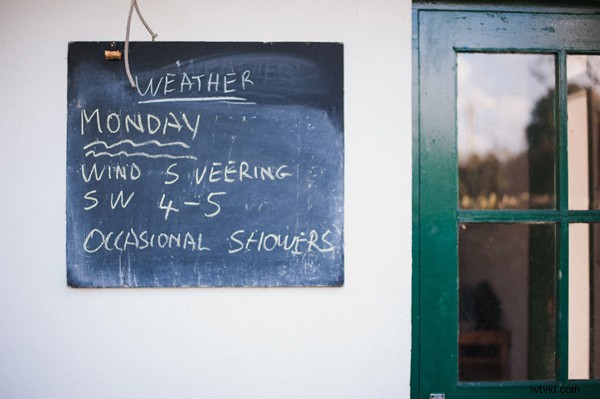 WEATHER
MONDAY
WIND S VEERING
SW 4-5
OCCASIONAL SHOWERS
wtvid.com